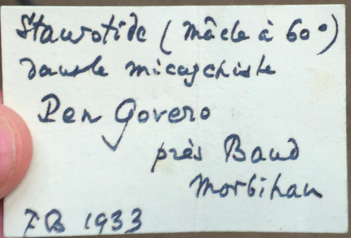 Staurotide (mâcle à 60°)
dans le micaschiste
Pen Govero
près Baud
Morbihan
FB 1933